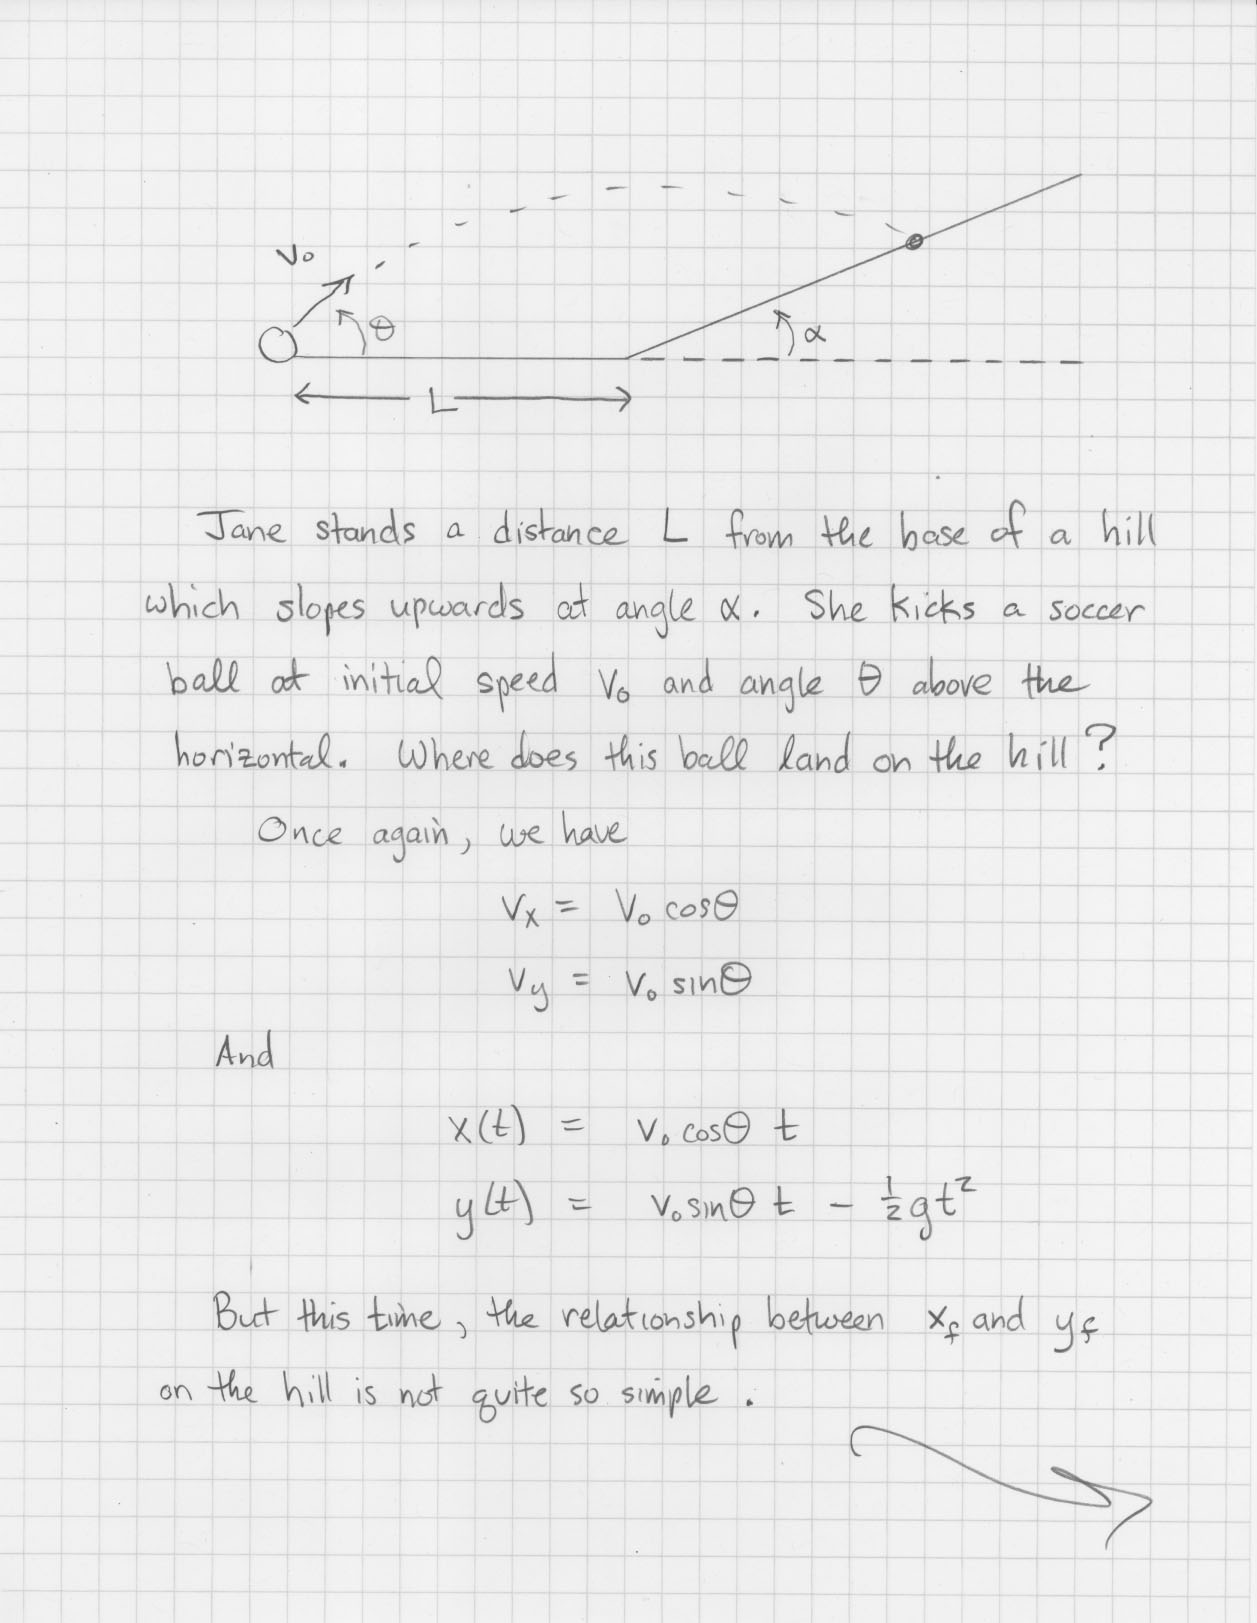 V₀
θ
α
L
Jane stands a distance L from the base of a hill
which slopes upwards at angle α. She kicks a soccer
ball at initial speed V₀ and angle θ above the
horizontal. Where does this ball land on the hill?
Once again, we have
Vx = V₀ cosθ
Vy = V₀ sinθ
And
x(t) = V₀ cosθ t
y(t) = V₀ sinθ t - ½gt²
But this time, the relationship between x_f and y_f
on the hill is not quite so simple.